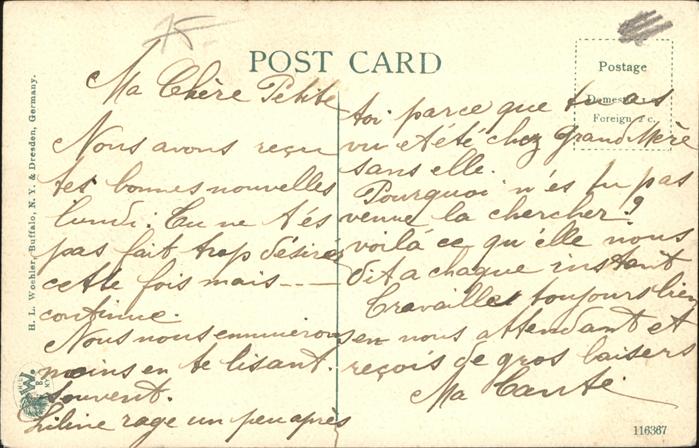 75
POST CARD
Postage
Domestic
Foreign 2 c.
H. L. Woehler, Buffalo, N. Y. & Dresden, Germany.
Ma Chère Petite
Nous avons reçu
tes bonnes nouvelles
lundi. Tu ne t'és
pas fait trop désirer
cette fois mais ----
continue.
Nous nous ennuierons
moins en te lisant.
souvent.
Liline rage un peu après
toi parce que tu as
vu eté chez Grand Mère
sans elle.
Pourquoi n'és tu pas
venue la chercher?
voilà ce qu'elle nous
dit a chaque instant
Travaille toujours bien
en nous attendant et
reçois de gros baisers
Ma Tante.
W.
116367